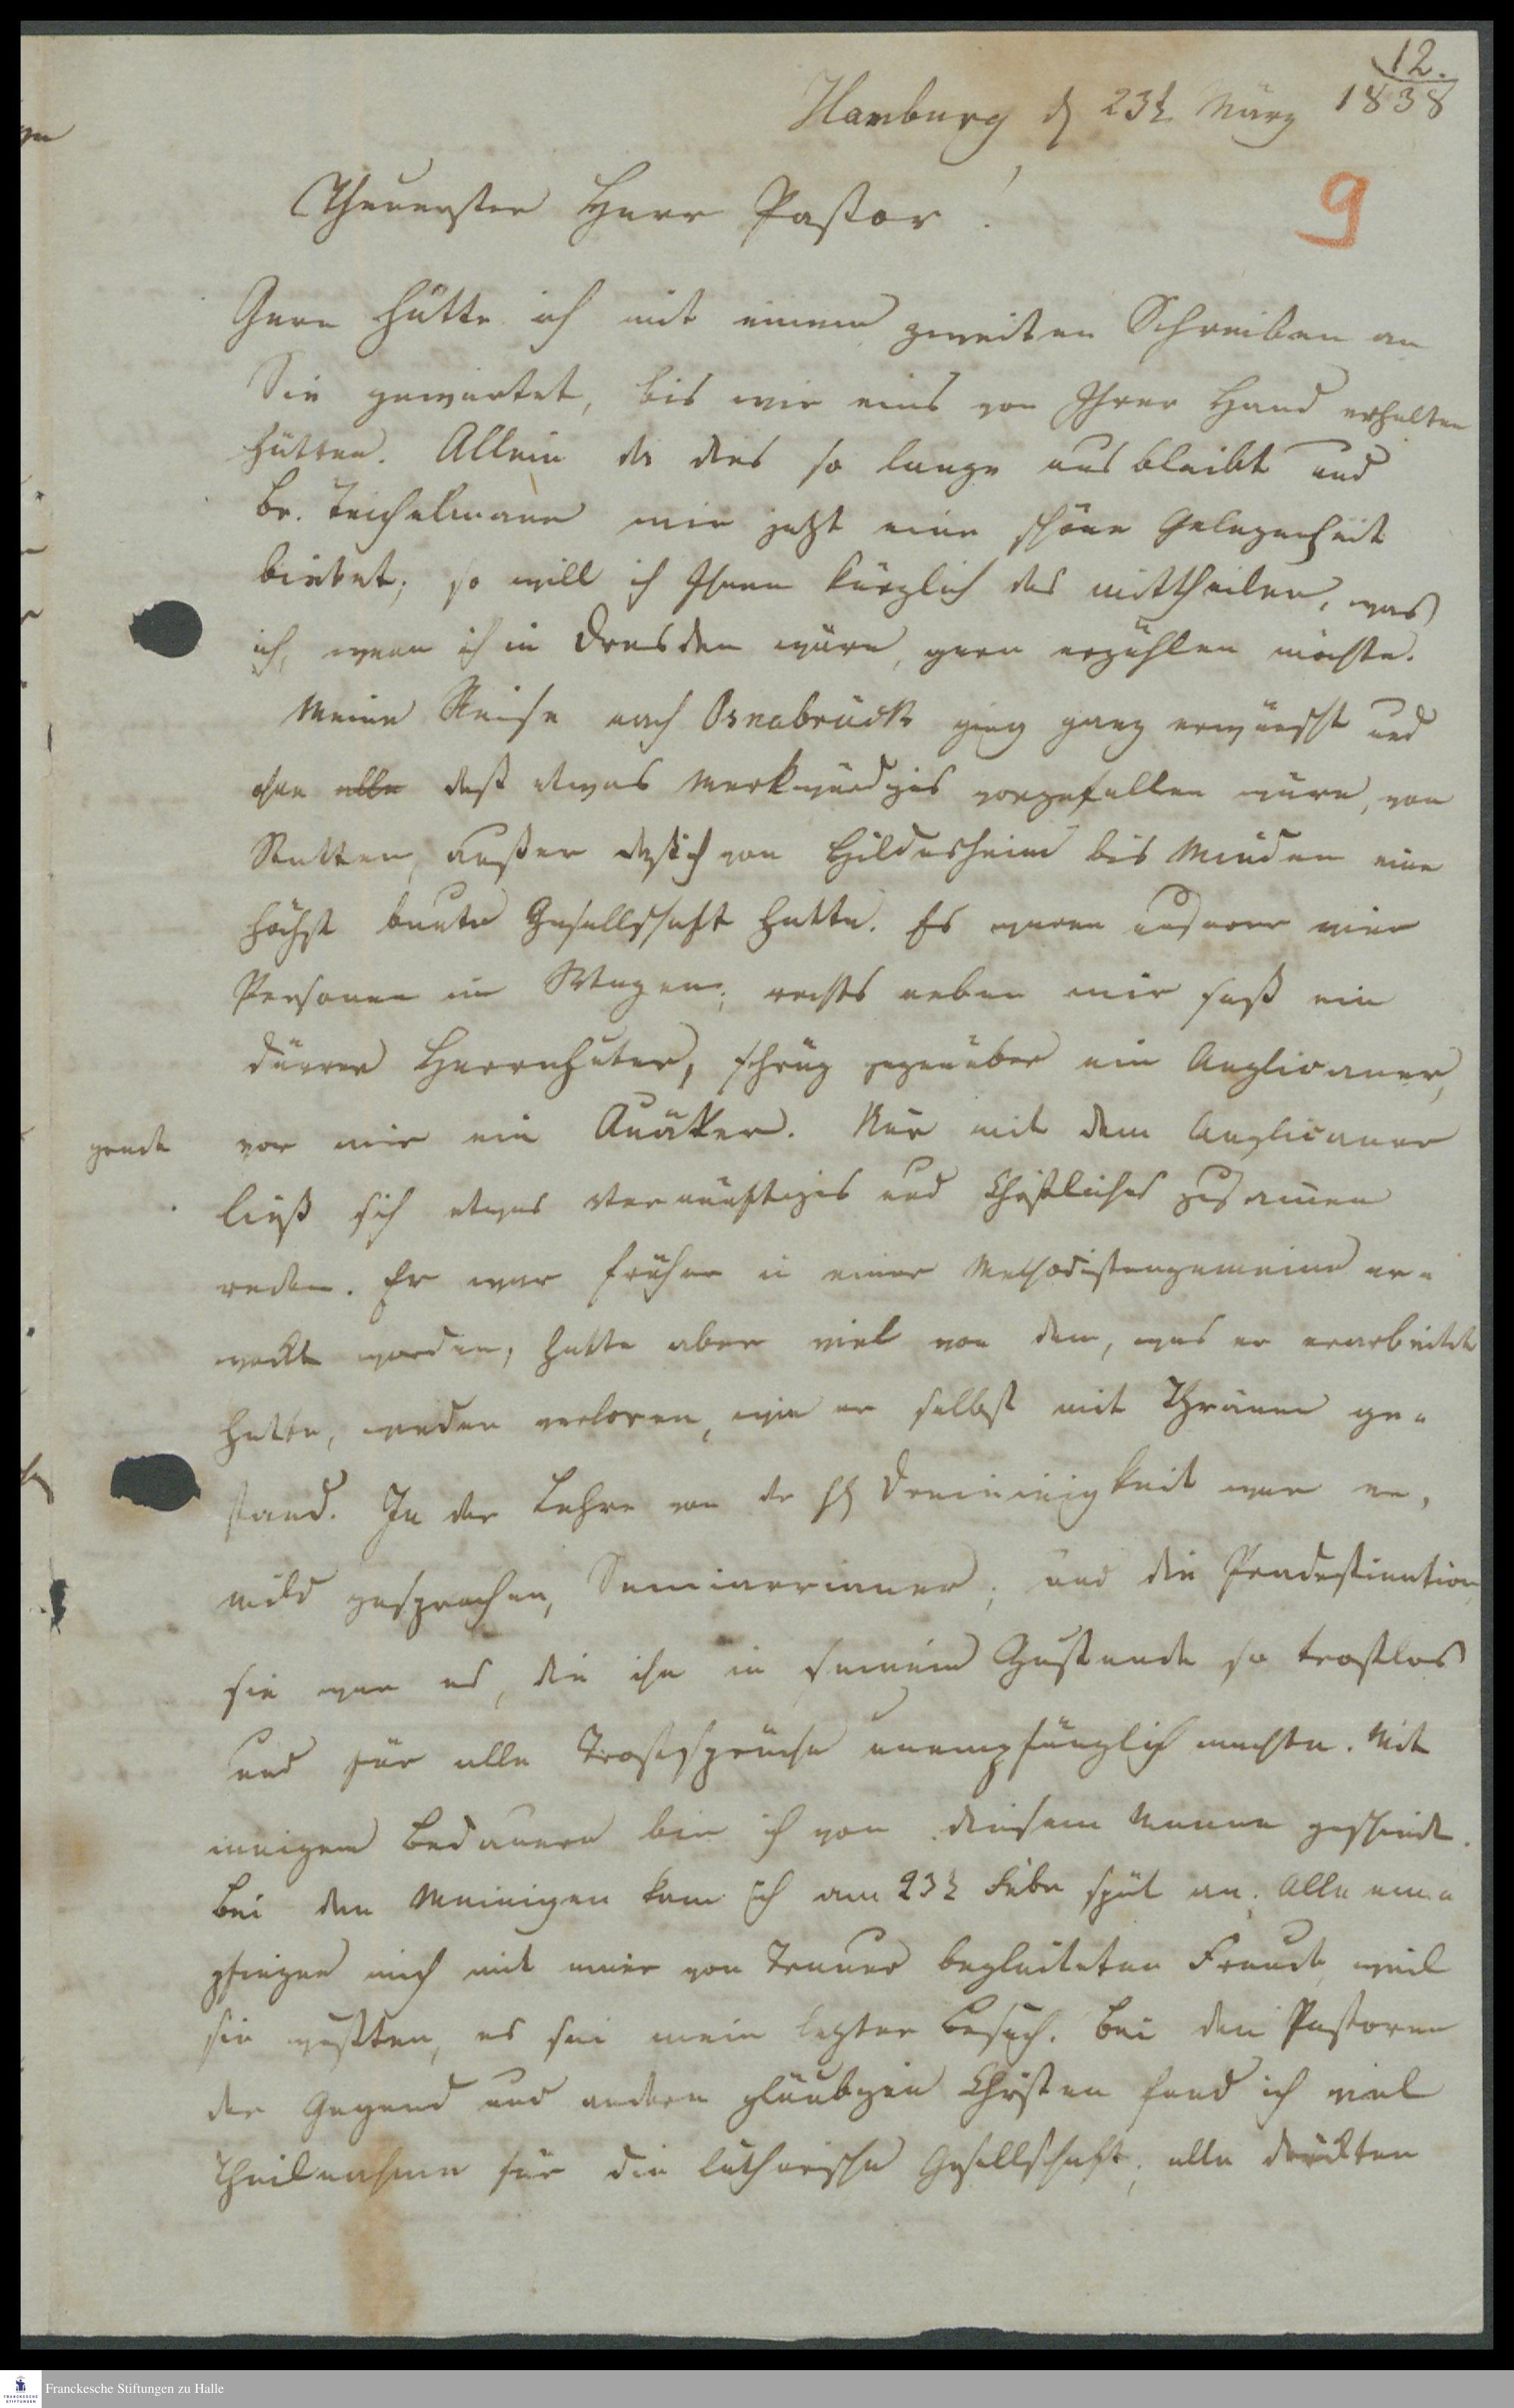 12.
Hamburg d 23t. März 1838
9
Theuerster Herr Pastor!
Gern hätte ich mit einem zweiten Schreiben an
Sie gewartet, bis wir eins von Ihrer Hand erhalten
hätten. Allein da dies so lange ausbleibt und
Br. Teichelmann mir jetzt eine schöne Gelegenheit
bietet; so will ich Ihnen kürzlich das mittheilen, was
ich, wenn ich in Dresden wäre, gern erzählen möchte.
Meine Reise nach Osnabrück ging ganz erwünscht und
ohne alle daß etwas Merkwürdiges vorgefallen wäre, von
Statten, außer daß ich von Hildesheim bis Minden eine
höchst bunte Gesellschaft hatte. Es waren unserer vier
Personen im Wagen; rechts neben mir saß ein
dürrer Herrnhuter, schräg gegenüber ein Anglicaner,
gerade vor mir ein Quäker. Nur mit dem Anglicaner
ließ sich etwas Vernünftiges und Christliches zusammen
reden. Er war früher in einer Methodistengemeine er-
weckt worden, hatte aber viel von dem, was er erarbeitet
hatte, wieder verloren, wie er selbst mit Thränen ge-
stand. In der Lehre von der hl Dreieinigkeit war er,
mild gesprochen, und die Prädestination
sie war es, die ihn in seinem Zustande so trostlos
und für alle Trostsprüche unempfänglich machte. Mit
innigem Bedauern bin ich von diesem Manne geschieden.
Bei den Meinigen kam ich am 23t Febr spät an. Alle em-
pfingen mich mit einer von Trauer begleiteten Freude, weil
sie wußten, es sei mein letzter Besuch. Bei den Pastoren
der Gegend und andern gläubigen Christen fand ich viel
Theilnahme für die lutherische Gesellschaft; alle drückten
Franckesche Stiftungen zu Halle